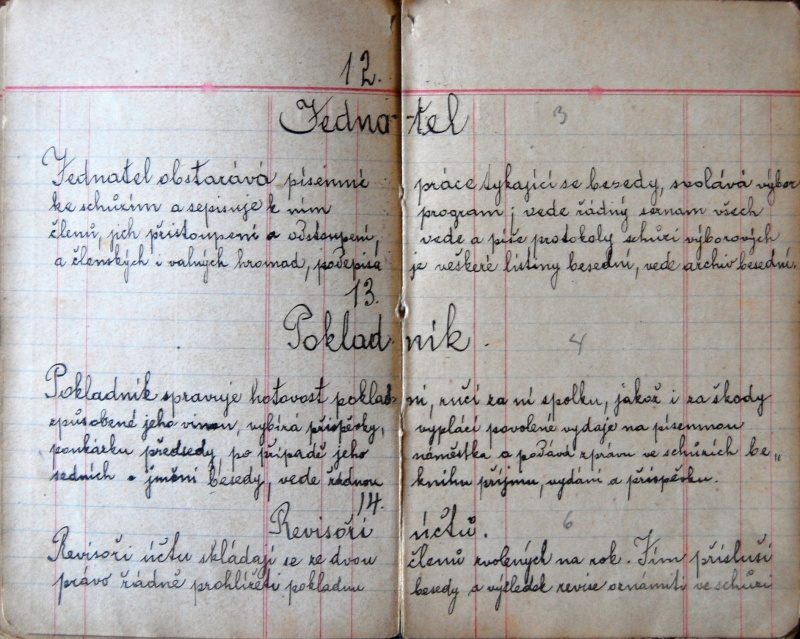 12.
Jednatel
3
Jednatel obstarává písemné práce tykající se besedy, svolává výbor
ke schůzím a sepisuje k nim program; vede řádný seznam všech
členů, jich přistoupení a odstoupení, vede a píše protokoly schůzí výborových
a členských i valných hromad, podepisuje veškeré listiny besední, vede archiv besední.
13.
Pokladník.
4
Pokladník spravuje hotovost pokladní, ručí za ní spolku, jakož i za škody
způsobené jeho vinou, vybírá příspěvky, vyplácí povolené vydaje na písemnou
poukázku předsedy, po případě jeho náměstka a podává zprávu ve schůzích be„
sedních o jmění besedy, vede řádnou knihu příjmu, vydání a příspěvku.
14.
Revisoři účtů.
6
Revisoři účtu skládají se ze dvou členů zvolených na rok. Jim přísluší
právo řádně prohlížeti pokladnu besedy a výsledek revise oznámiti ve schůzi